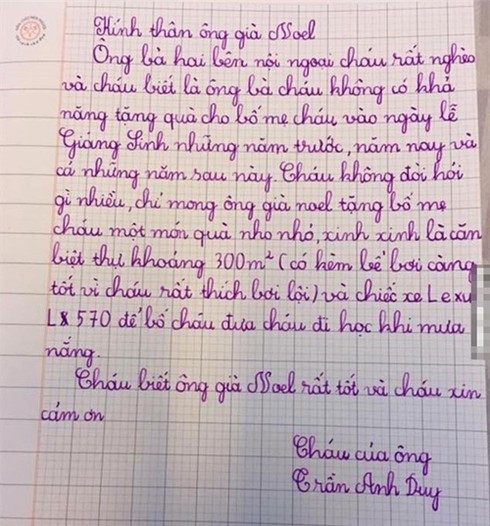 Kính thân ông già Noel
Ông bà hai bên nội ngoại cháu rất nghèo
và cháu biết là ông bà cháu không có khả
năng tặng quà cho bố mẹ cháu vào ngày lễ
Giáng Sinh những năm trước, năm nay và
cả những năm sau này. Cháu không đòi hỏi
gì nhiều, chỉ mong ông già noel tặng bố mẹ
cháu một món quà nho nhỏ, xinh xinh là căn
biệt thự khoảng 300m² (có kèm bể bơi càng
tốt vì cháu rất thích bơi lội) và chiếc xe Lexu
LX 570 để bố cháu đưa cháu đi học khi mưa
nắng.
Cháu biết ông già Noel rất tốt và cháu xin
cảm ơn
Cháu của ông
Trần Anh Duy